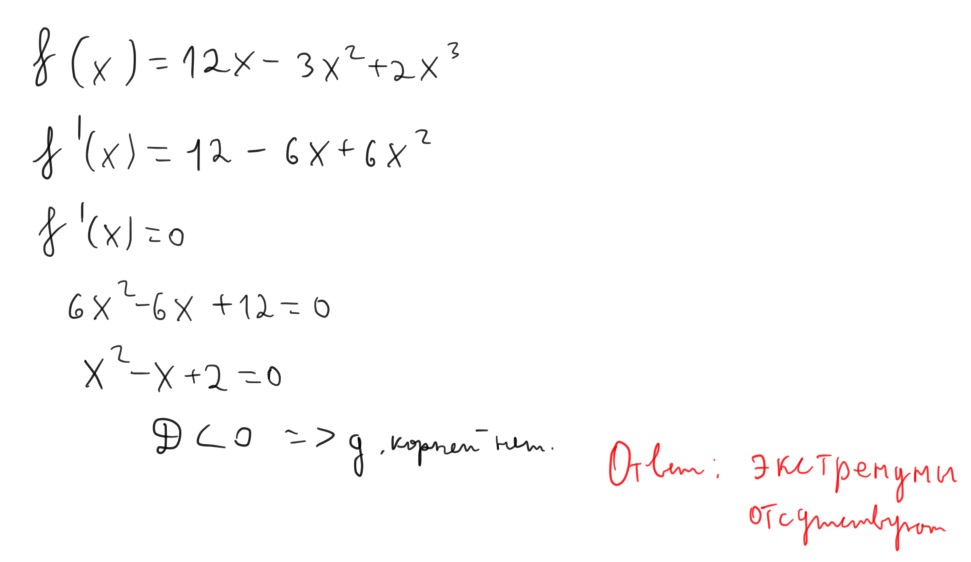 f(x) = 12x - 3x² + 2x³
f'(x) = 12 - 6x + 6x²
f'(x) = 0
6x² - 6x + 12 = 0
x² - x + 2 = 0
D < 0 => д. корней нет.
Ответ: экстремумы
отсутствуют